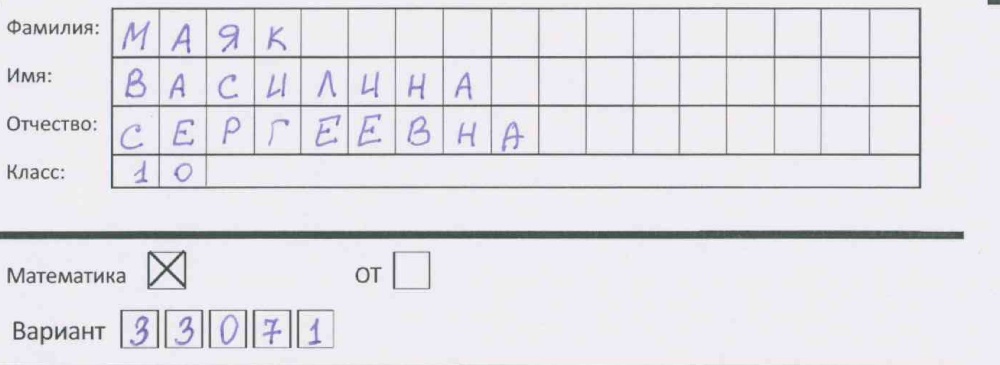 Фамилия: МАЯК
Имя: ВАСИЛИНА
Отчество: СЕРГЕЕВНА
Класс: 10
Математика ☒ ОТ ☐
Вариант 33071